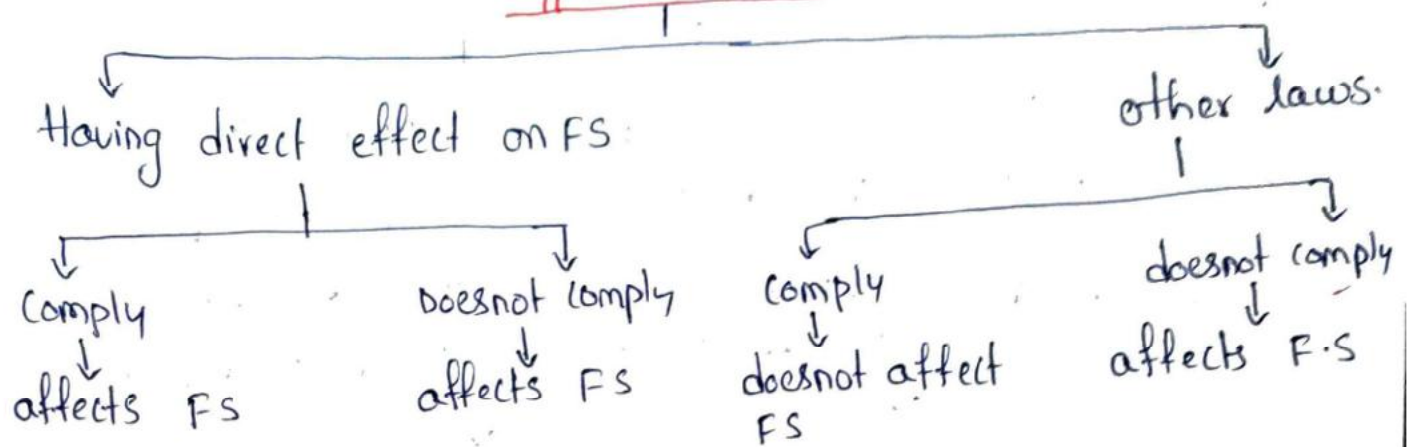 Having direct effect on FS
other laws.
Comply
affects FS
Doesnot Comply
affects FS
Comply
doesnot affect
FS
doesnot comply
affects F.S